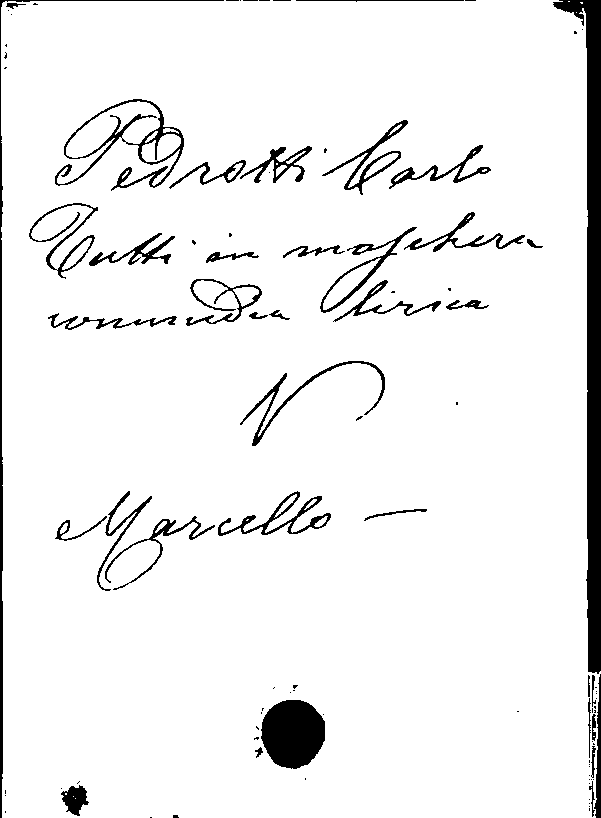 Pedrotti Carlo
Tutti in maschera
commedia lirica
V
Marcello —